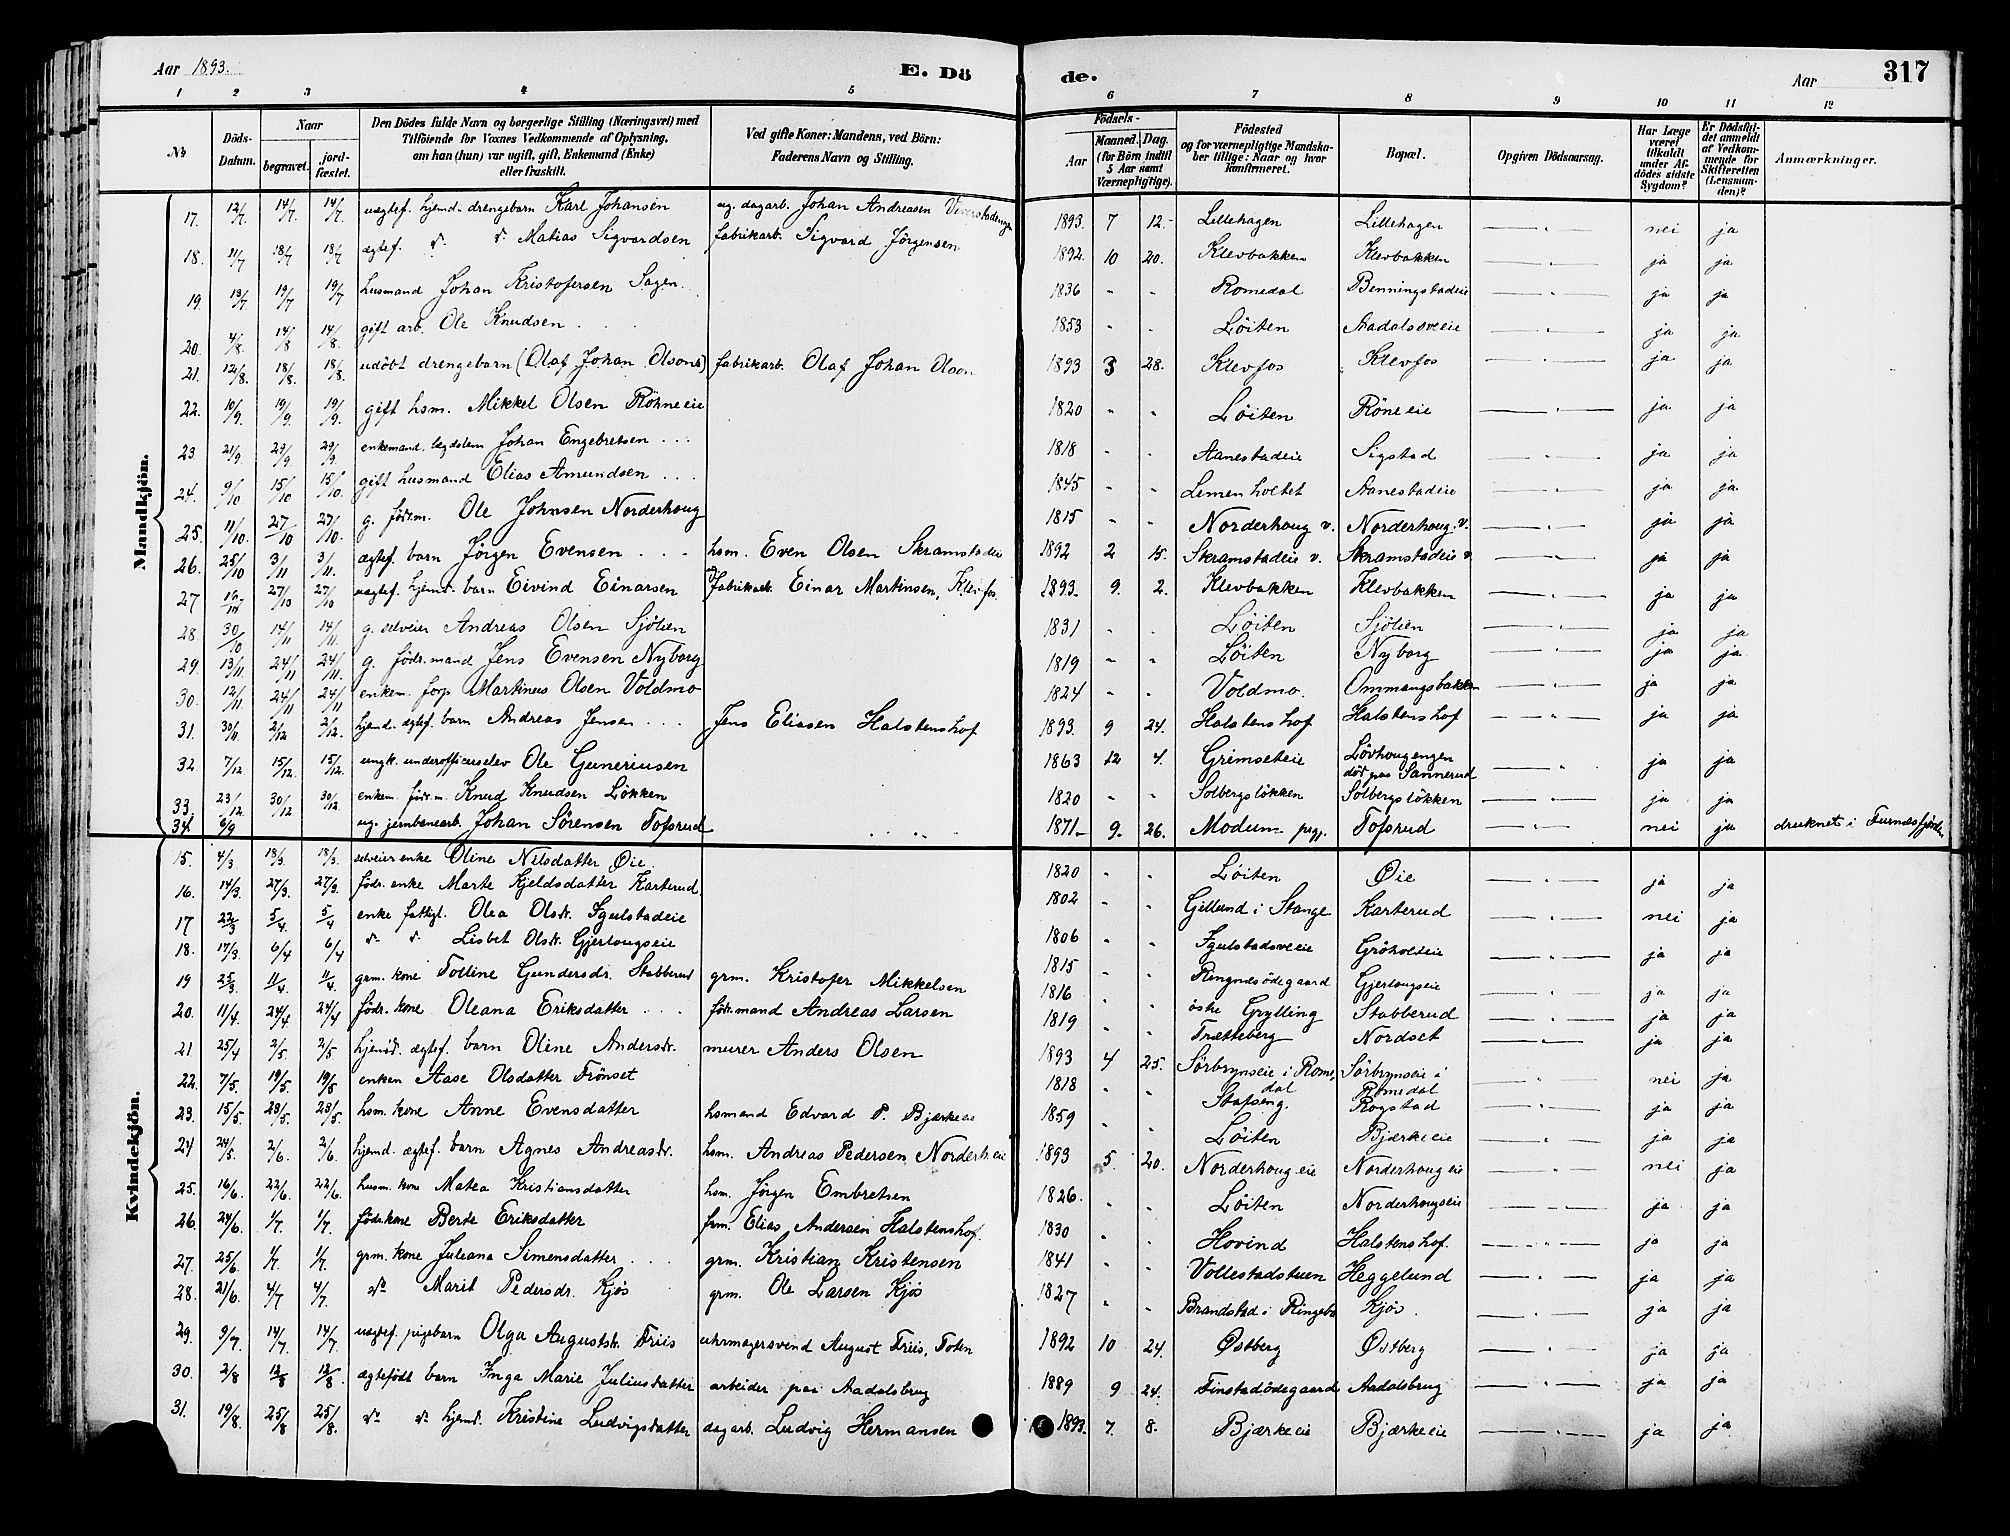 Aar 1893. E. Dö de. Aar 317
1 2 3 4 5 6 7 8 9 10 11 12
No
Döds-Datum.
Naar begravet. jordfæstet.
Den Dödes fulde Navn og borgerlige Stilling (Næringsvei) med Tilföiende for Voxnes Vedkommende af Oplysning, om han (hun) var ugift, gift, Enkemand (Enke) eller fraskilt.
Ved gifte Koner: Mandens, ved Börn: Faderens Navn og Stilling.
Födsels-
Aar Maaned. Dag. (for Börn indtil 5 Aar samt Værnepligtige).
Födested og for værnepligtige Mandskaber tillige: Naar og hvor konfirmeret.
Bopæl.
Opgiven Dödsaarsag.
Har Læge været tilkaldt under Afdödes sidste Sygdom?
Er Dödsfaldet anmeldt af Vedkommende for Skifteretten (Lensmanden)?
Anmærkninger.
Mandkjön.
17. 12/7 14/7 14/7 uægtef. hjemd. drengebarn Karl Johansen ug. dagarb. Johan Andreasen 1893 7 12. Lillehagen Lillehagen — " — nei ja
18. 11/7 18/7 18/7 ægtef. d. d. Matias Sigvardsen fabrikarb. Sigvard Jörgensen 1892 10 20. Klevbakken Klevbakken — " — ja ja
19 13/7 19/7 19/7 husmand Johan Kristofersen Sagen 1836 " " Romedal Benningstadeie — " — ja ja
20. 4/8. 14/8 14/8. gift arb. Ole Knudsen 1853 " " Löiten Aadalsveeie — " — ja ja
21. 12/8. 18/8. 18/8. udöbt drengebarn (Olaf Johan Olsons) fabrikarb. Olaf Johan Olson 1893 3 28. Klevfos Klevfos — " — ja ja
22. 10/9 19/9. 19/9. gift hsm. Mikkel Olsen Röhneeie 1820 " " Löiten Röneeie — " — ja ja
23. 21/9. 29/9. 29/9. enkemand lægdslem Johan Engebretsen 1818 " " Aanestadeie Sigstad — " — ja ja
24. 9/10 15/10 15/10. gift husmand Elias Amundsen 1845 " " Lemenholtet Aanestadeie — " — ja ja
25. 11/10. 27/10 27/10. g. födr.m. Ole Johnsen Norderhoug 1815 " " Norderhoug v. Norderhoug. v. — " — ja ja
26. 25/10 3/11 3/11. ægtef. barn Jörgen Evensen hsm. Even Olsen Skramstadeie 1892 2 15. Skramstadeie v. Skramstadeie v. — " — ja ja
27 27/10 27/10 uægtef. hjemd. barn Eivind Einarsen Fabrikarb. Einar Martinsen, Klevfos. 1893. 9. 2. Klevbakken Klevbakken — " — ja ja
28 30/10 14/11 14/11. g. selveier Andreas Olsen Sjölien 1831 " " Löiten Sjölien — " — ja ja
29. 13/11. 24/11 24/11. g. födr.mand Jens Evensen Nyborg 1819 " " Löiten Nyborg — " — ja ja
30. 12/11 24/11 24/11 enkem. forp. Martinus Olsen Voldmo 1824 " " Voldmo. Ommangsbakken — " — ja ja
31. 30/11. 2/12 2/12. hjemd. ægtef. barn Andreas Jensen Jens Eliasen Halstenshof 1893. 9 24. Halstenshof Halstenshof — " — ja ja
32 7/12 15/12. 15/12. ungk. underofficerselev Ole Gunerius­en 1863 12 4. Grimseteie Lövhougengen död paa Sannerud — " — ja ja
33. 23/12. 30/12 30/12. enkem. födr.m. Knud Knudsen Lökken 1820 " " Solbergslökken Solbergslökken — " — ja ja
34. 6/9 ug. jernbanearb. Johan Sörensen Tofsrud 1871 9. 26. Modum prgj. Tofsrud — " — nei ja druknet i Furnæsfjorden
Kvindekjön.
15. 4/3. 13/3. 13/3. selveier enke Oline Nilsdatter Øie 1820 " " Löiten Øie — " — ja ja
16. 14/3. 27/3. 27/3. födr. enke Marte Kjeldsdatter Karterud. 1802 " " Gillund i Stange Karterud — " — nei ja
17 22/3 5/4. 5/4 enke fattigl. Olea Olsdr. Igulstadeie 1806 " " Igulstadsveeie Gröholteie — " — ja ja
18. 17/3. 6/4 6/4 d. d. Lisbet Olsdr. Gjerlougseie 1815 " " Ringnæsödegaard Gjerlougseie — " — ja ja
19 25/3. 11/4 11/4. grm. kone Tolline Gundersdr. Stabberud grm. Kristofer Mikkelsen 1816 " " östre Grylling Stabberud — " — ja ja
20. 11/4. 24/4 24/4 födr. kone Oleana Eriksdatter födr.mand Andreas Larsen 1819 " " Trætteberg Nordset — " — ja ja
21 25/4 2/5 2/5 hjemd. ægtef. barn Oline Andersdr. murer Anders Olsen 1893 4 25. Sörbrynseie i Romedal Sörbrynseie i Romedal — " — nei ja
22. 7/5. 19/5. 19/5 enken Aase Olsdatter Frönset 1818 " " Stafseng. Rogstad — " — ja ja
23. 15/5. 23/5. 23/5. hsm. kone Anne Evensdatter hsmand Edvard P. Bjerkeeie 1859 " " Löiten Bjærkeeie — " — ja ja
24 24/5. 2/6. 2/6. hjemd. ægtef. barn Agnes Andreasdr. hsm. Andreas Pedersen Norderheie 1893 5. 20. Norderhougeie Norderhougeie — " — nei ja
25. 16/6. 22/6. 22/6. husm. kone Matea Kristiansdatter hsm. Jörgen Embretsen 1826. " " Löiten Norderhougseie — " — ja ja
26. 24/6. 1/7 1/7. födr.kone Berte Eriksdatter frm. Elias Andersen Halstenshof. 1830 " " Hovind Halstenshof. — " — ja ja
27. 25/6. 1/7. 1/7. grm. kone Juliana Simensdatter grm. Kristian Kristensen 1841 " " Vollestadstuen Heggelund — " — ja ja
28. 21/6. 4/7 4/7. do Marit Pedersdr. Kjös grm. Ole Larsen Kjös 1827 " " Brandstad i Ringebo Kjös. — " — ja ja
29. 9/7. 14/7. 14/7. uægtef. pigebarn Olga Augustdr. Friis uhrmagersvend August Friis, Toten 1892 10 24. Østberg Østberg — " — ja ja
30 2/8 12/8 12/8. ægtefödt barn Inga Marie Juliusdatter arbeider paa Aadalsbrug 1889 9 24. Finstadödegaard Aadalsbrug — " — ja ja
31. 19/8. 25/8 25/8. do do hjemd. Kristine Ludvigsdatter dagarb. Ludvig Hermansen 1893. 7. 8. Bjærkeeie Bjærkeeie — " — ja ja